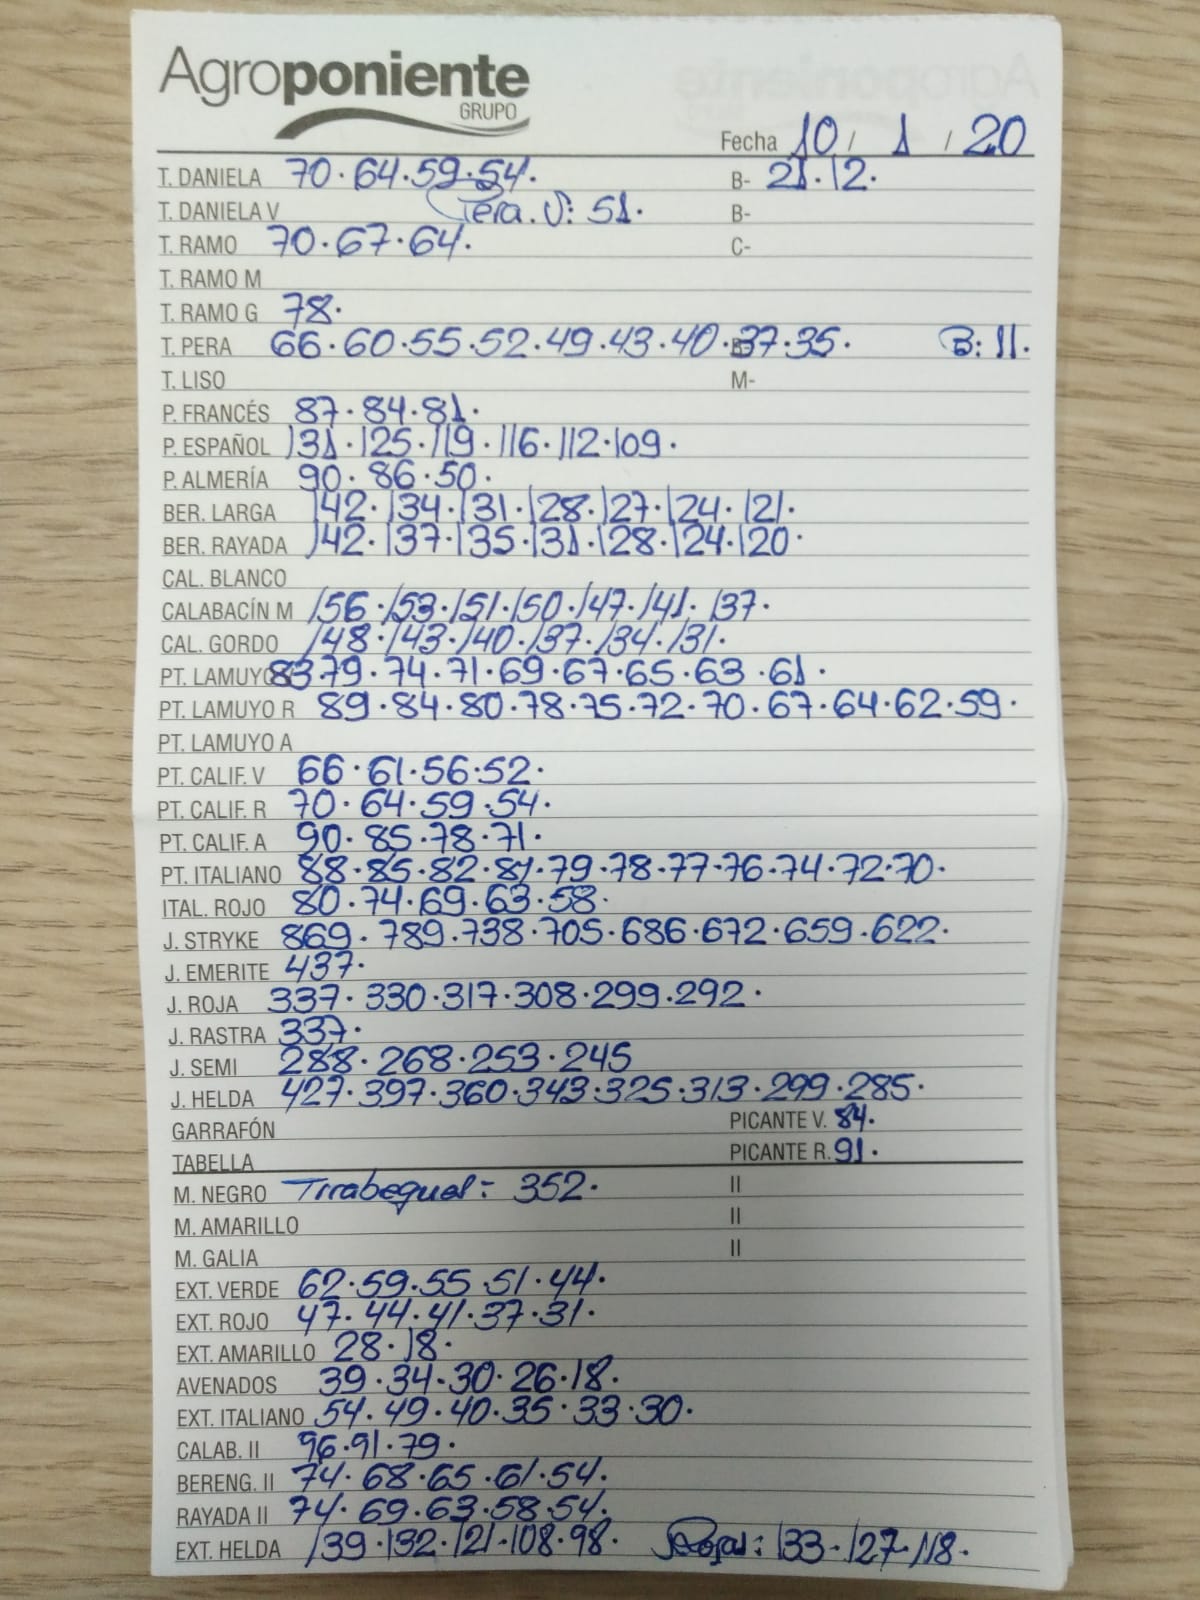 Agroponiente
GRUPO
Fecha 10 / 1 / 20
T. DANIELA 70·64·59·54. B- 21·12.
T. DANIELA V Pera. V: 51. B-
T. RAMO 70·67·64. C-
T. RAMO M
T. RAMO G 78.
T. PERA 66·60·55·52·49·43·40·37·35. B: 11.
T. LISO M-
P. FRANCÉS 87·84·81.
P. ESPAÑOL 131·125·119·116·112·109.
P. ALMERÍA 90·86·50.
BER. LARGA 142·134·131·128·127·124·121.
BER. RAYADA 142·137·135·131·128·124·120.
CAL. BLANCO
CALABACÍN M 156·153·151·150·147·141·137.
CAL. GORDO 148·143·140·137·134·131.
PT. LAMUYO 83·79·74·71·69·67·65·63·61.
PT. LAMUYO R 89·84·80·78·75·72·70·67·64·62·59.
PT. LAMUYO A
PT. CALIF. V 66·61·56·52.
PT. CALIF. R 70·64·59·54.
PT. CALIF. A 90·85·78·71.
PT. ITALIANO 88·85·82·81·79·78·77·76·74·72·70.
ITAL. ROJO 80·74·69·63·58.
J. STRYKE 869·789·738·705·686·672·659·622.
J. EMERITE 437.
J. ROJA 337·330·317·308·299·292.
J. RASTRA 337.
J. SEMI 288·268·253·245
J. HELDA 427·397·360·343·325·313·299·285.
GARRAFÓN PICANTE V. 84.
TABELLA PICANTE R. 91.
M. NEGRO Tirabeques: 352. II
M. AMARILLO II
M. GALIA II
EXT. VERDE 62·59·55·51·44.
EXT. ROJO 47·44·41·37·31.
EXT. AMARILLO 28·18.
AVENADOS 39·34·30·26·18.
EXT. ITALIANO 54·49·40·35·33·30.
CALAB. II 96·91·79.
BERENG. II 74·68·65·61·54.
RAYADA II 74·69·63·58·54.
EXT. HELDA 139·132·121·108·98. Rojas: 133·127·118.